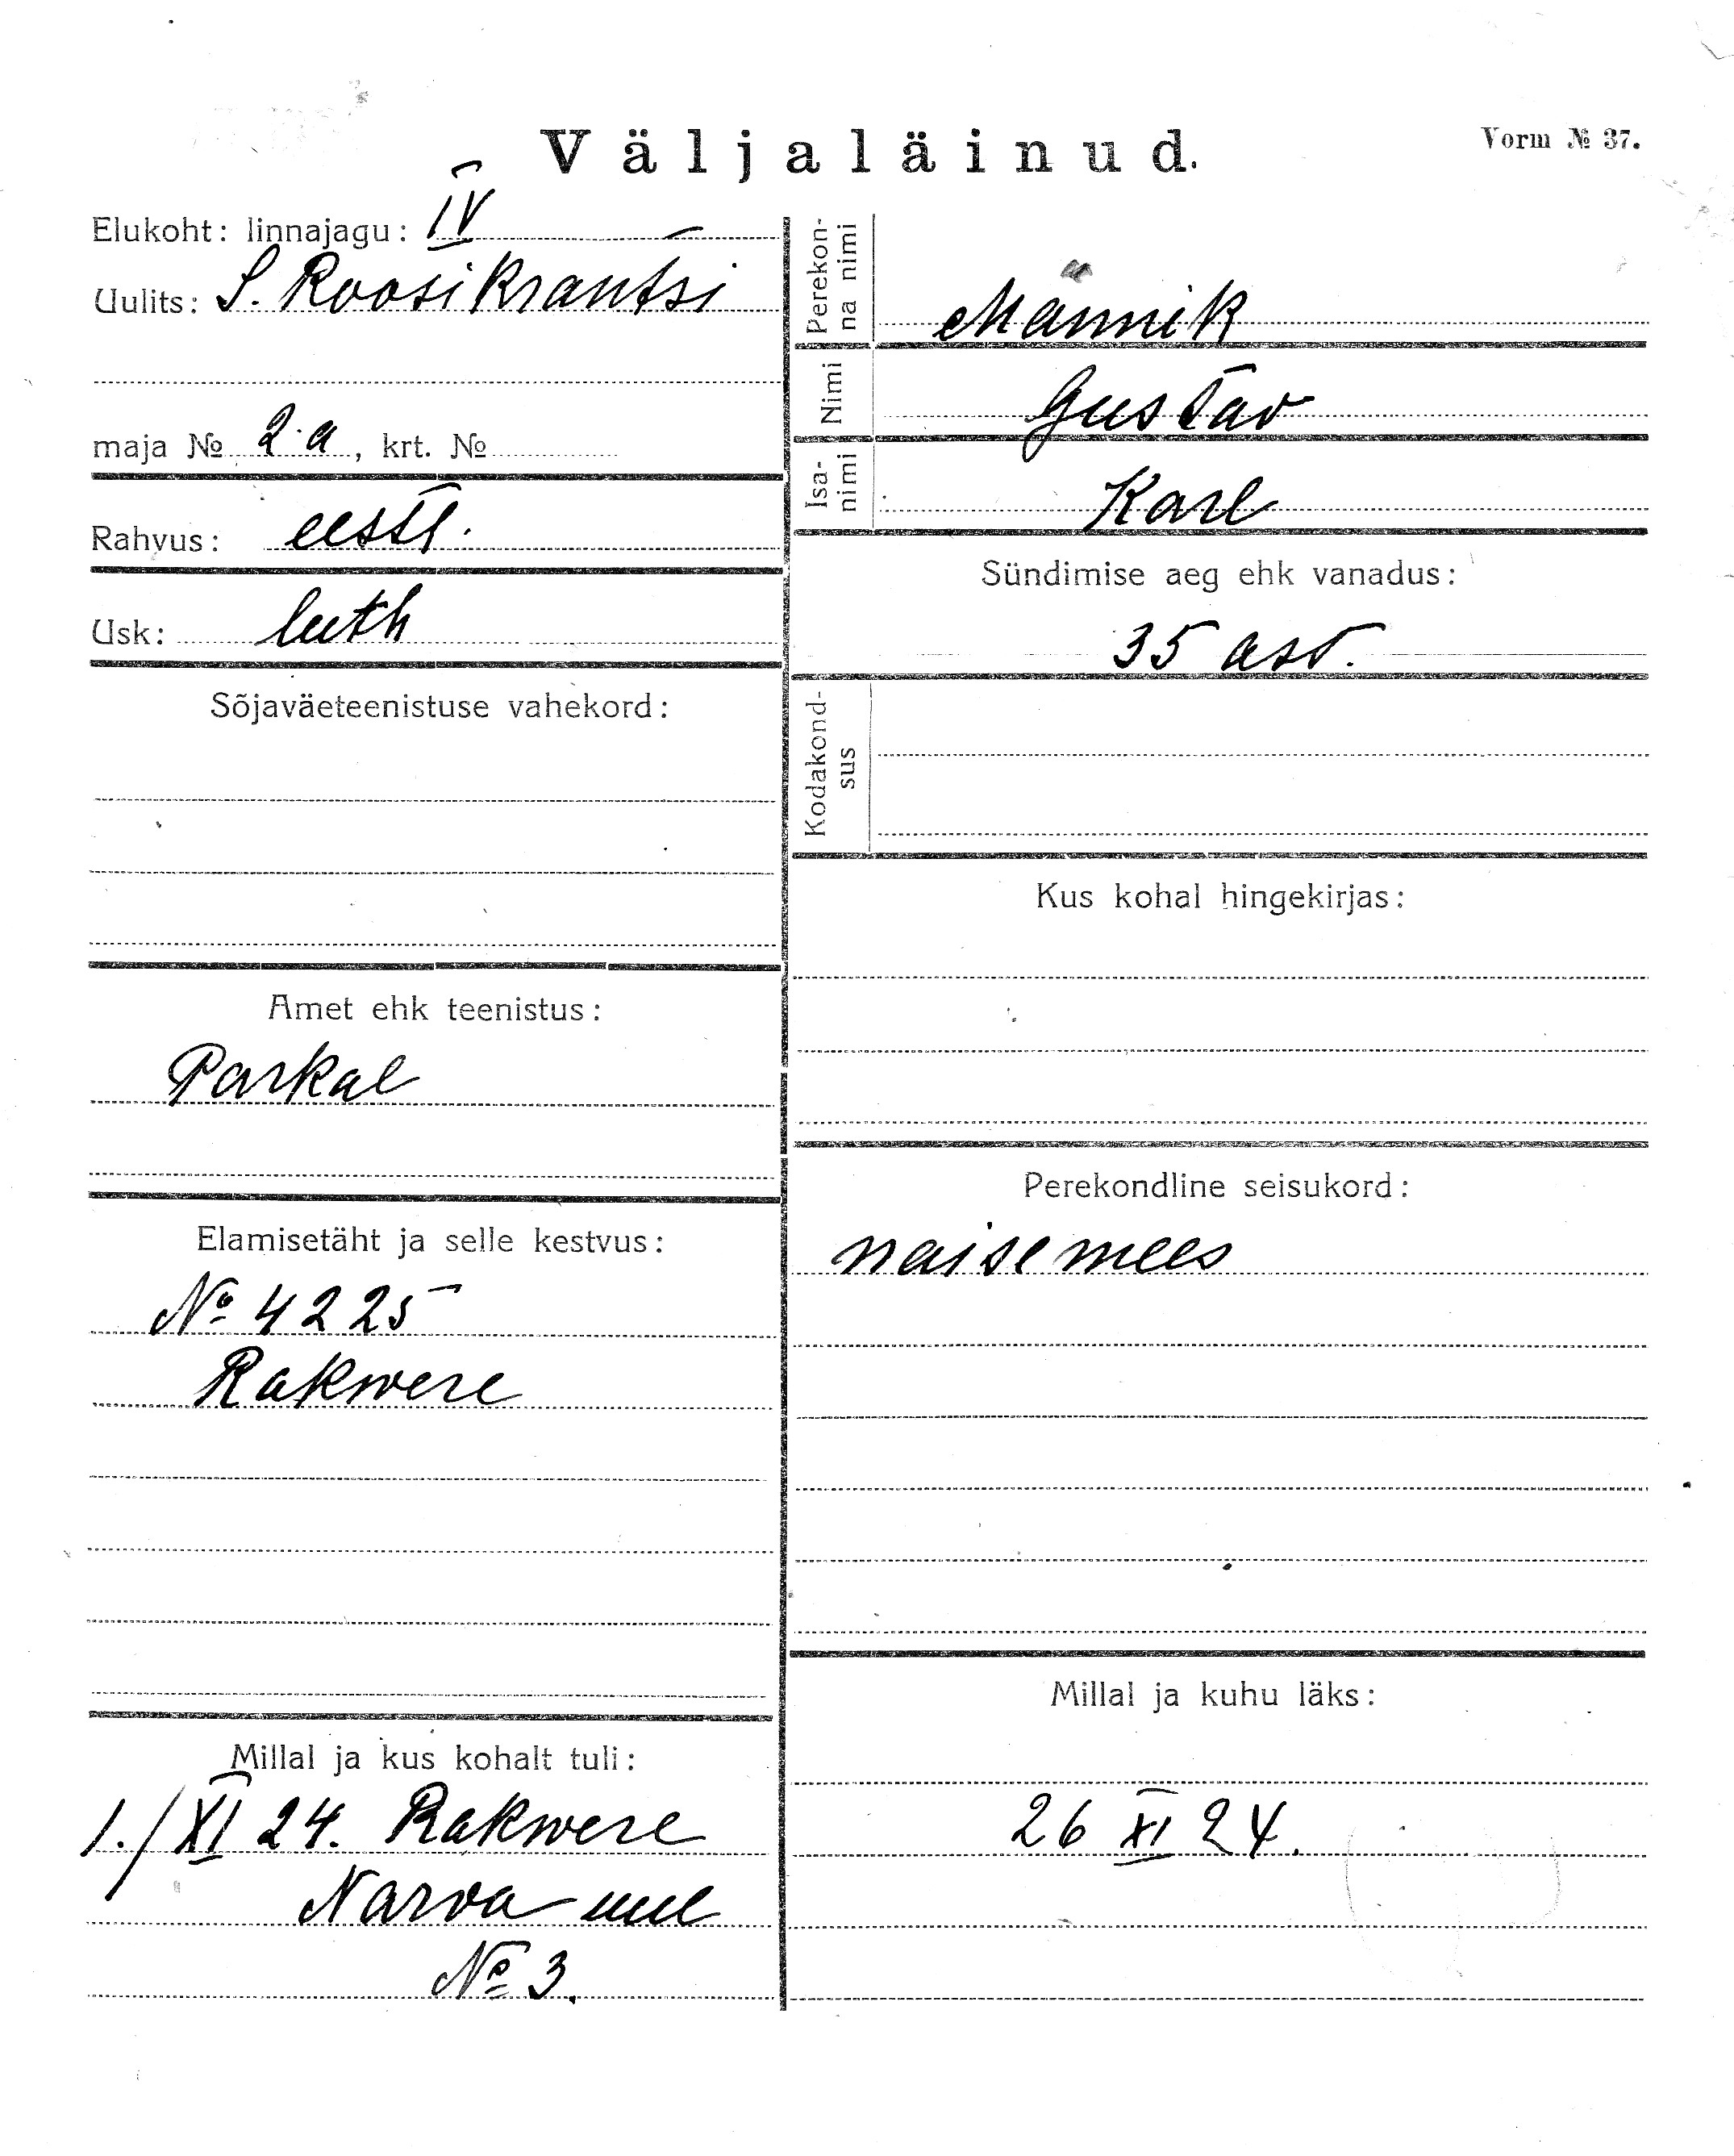 Väljaläinud.
Vorm № 37.
Elukoht: linnajagu: IV
Uulits: S. Roosikrantsi
maja № 2a, krt. №
Rahvus: eestl.
Usk: luth
Sõjaväeteenistuse vahekord:
Amet ehk teenistus:
Parkal
Elamisetäht ja selle kestvus:
№ 4225
Rakwere
Millal ja kus kohalt tuli:
1./XI 24. Rakwere
Narva uul
№ 3.
Perekon-
na nimi
Männik
Nimi
Gustav
Isa-
nimi
Karl
Sündimise aeg ehk vanadus:
35 ast.
Kodakond-
sus
Kus kohal hingekirjas:
Perekondline seisukord:
naisemees
Millal ja kuhu läks:
26 XI 24.